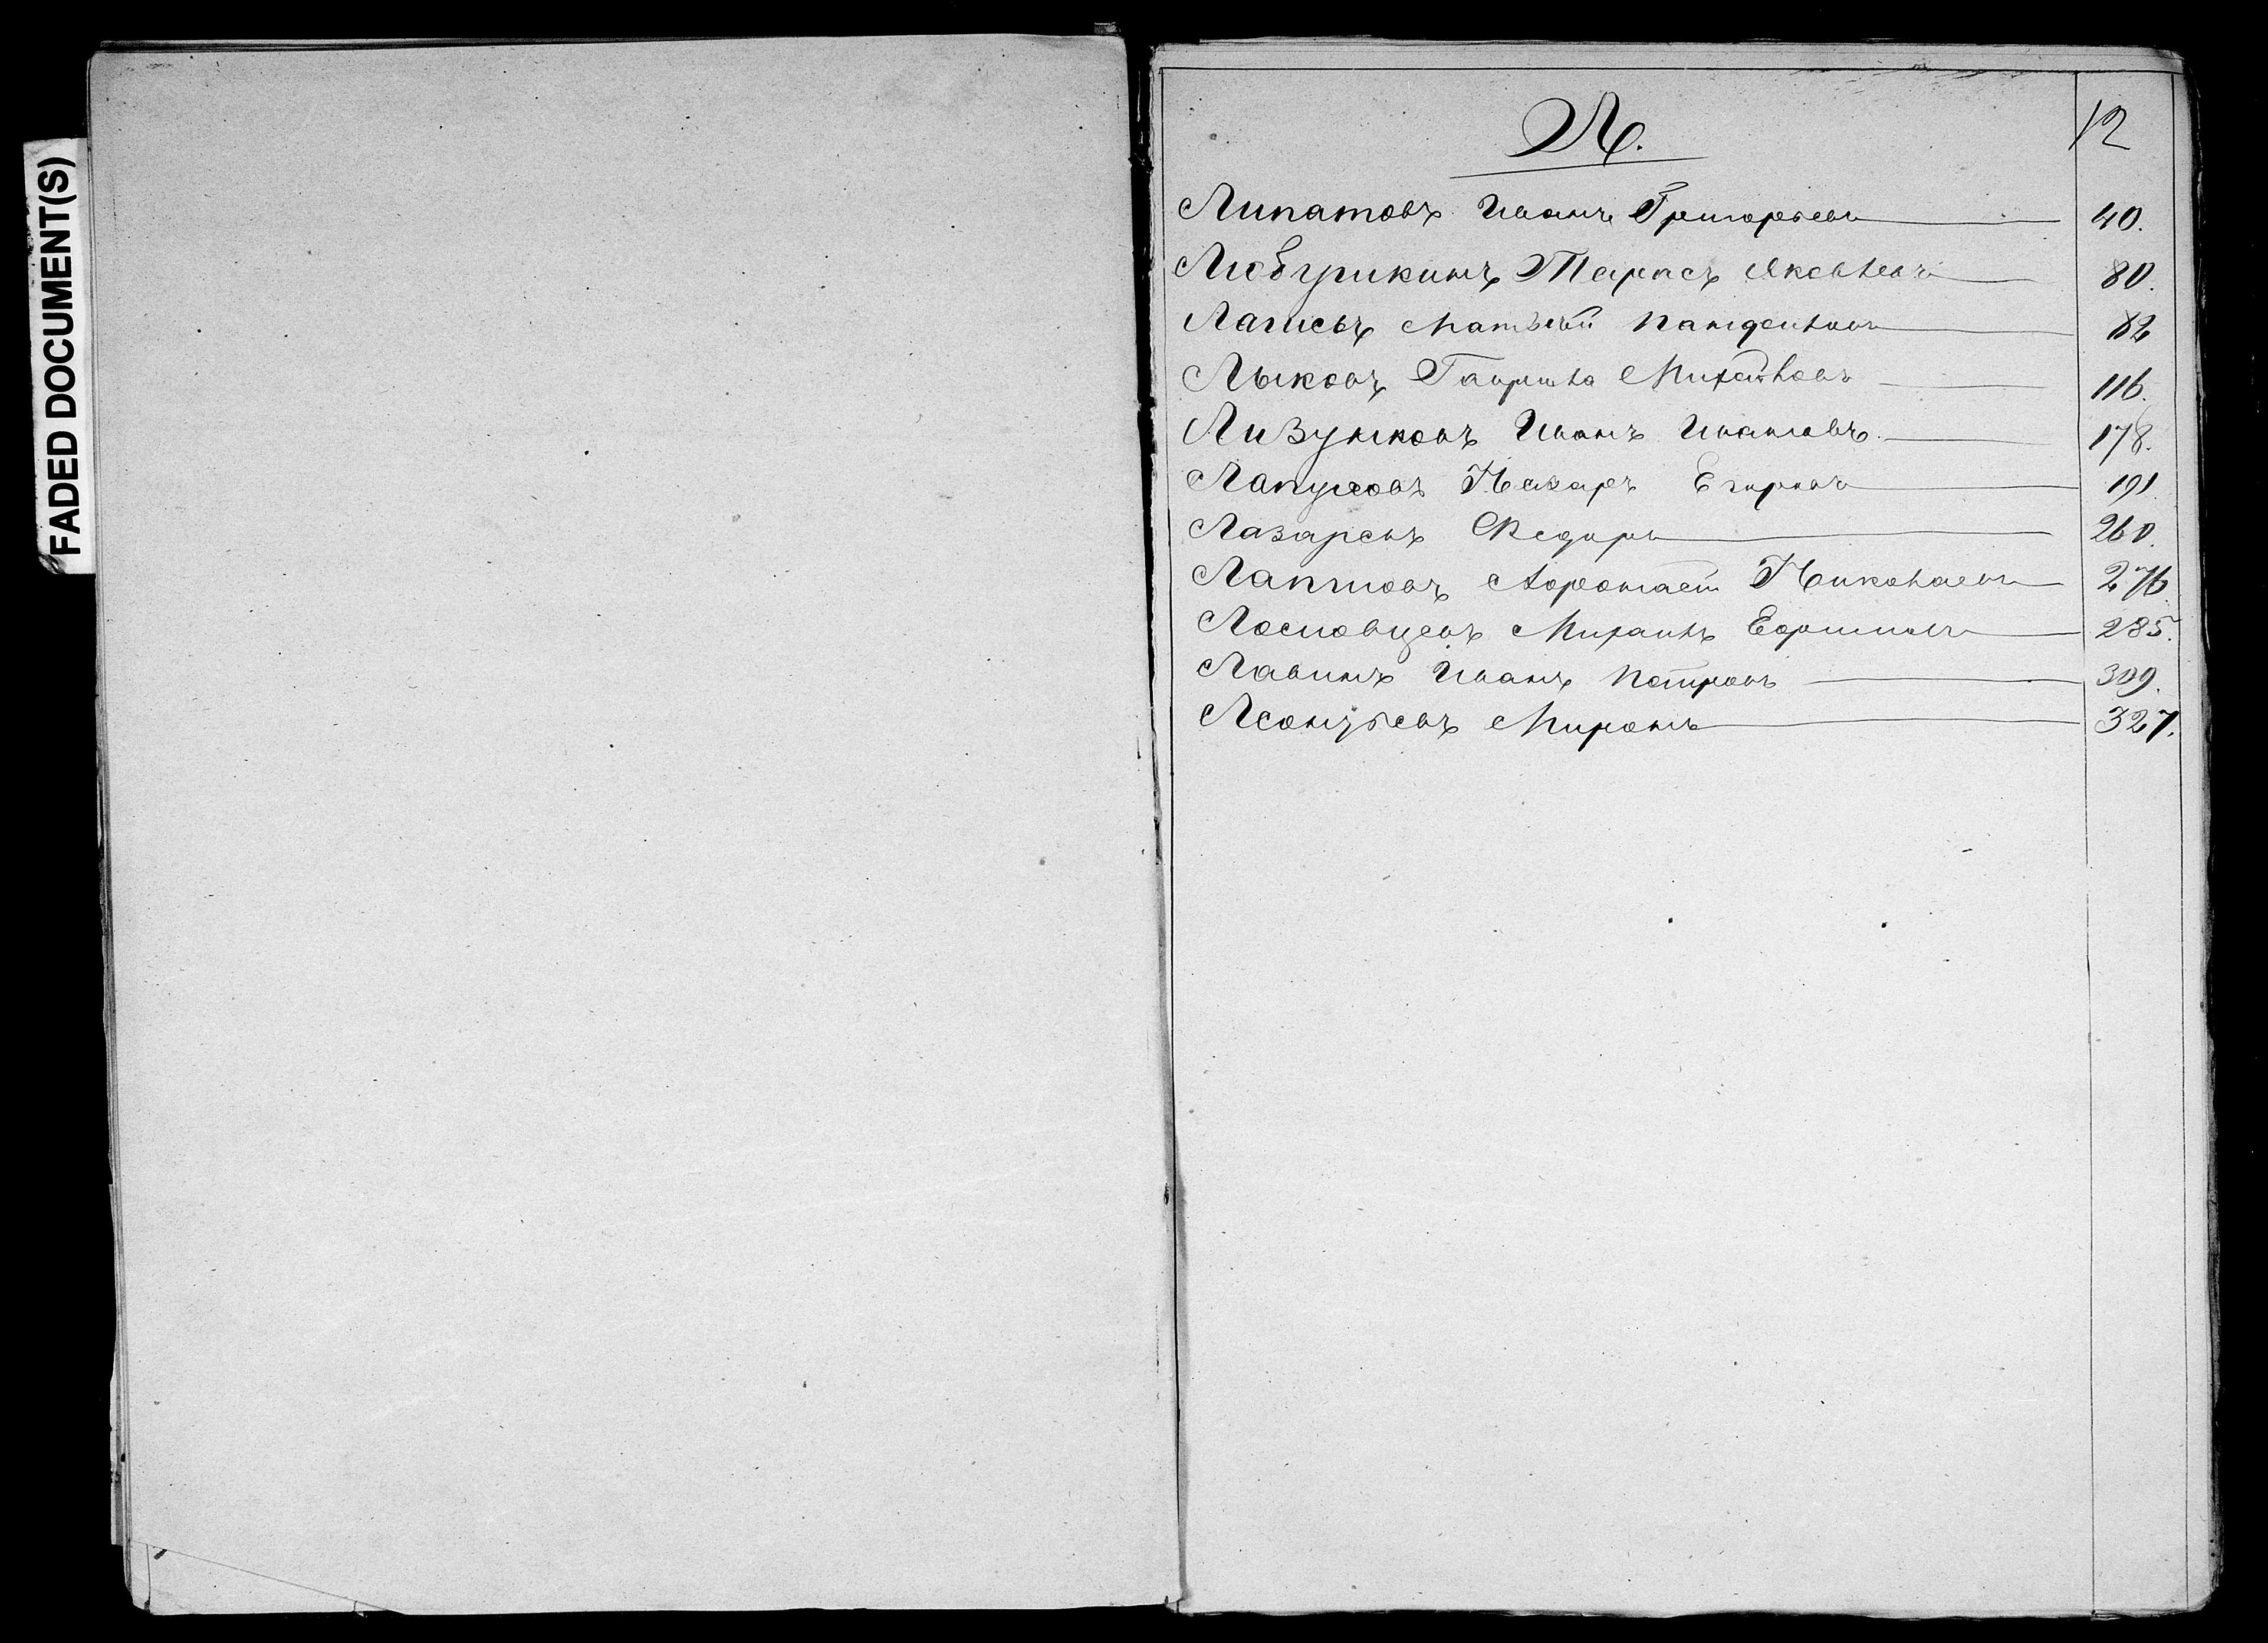 FADED DOCUMENT(S)
Л. 12
Липатовъ Иванъ Григорьевъ 40.
Любушкинъ Тарасъ Яковлевъ 80.
Матвѣй 82
Лыковъ Гаврила Михайловъ 116.
Лизунковъ Иванъ Ивановъ 178.
Лапуховъ Назаръ Егоровъ 191
Лазаревъ Федоръ 260.
Лаптиовъ Афонасей Николаевъ 276
Михаилъ Ефимовъ 285.
Лавинъ Иванъ Петровъ 309.
Леонтьевъ Миронъ 327.